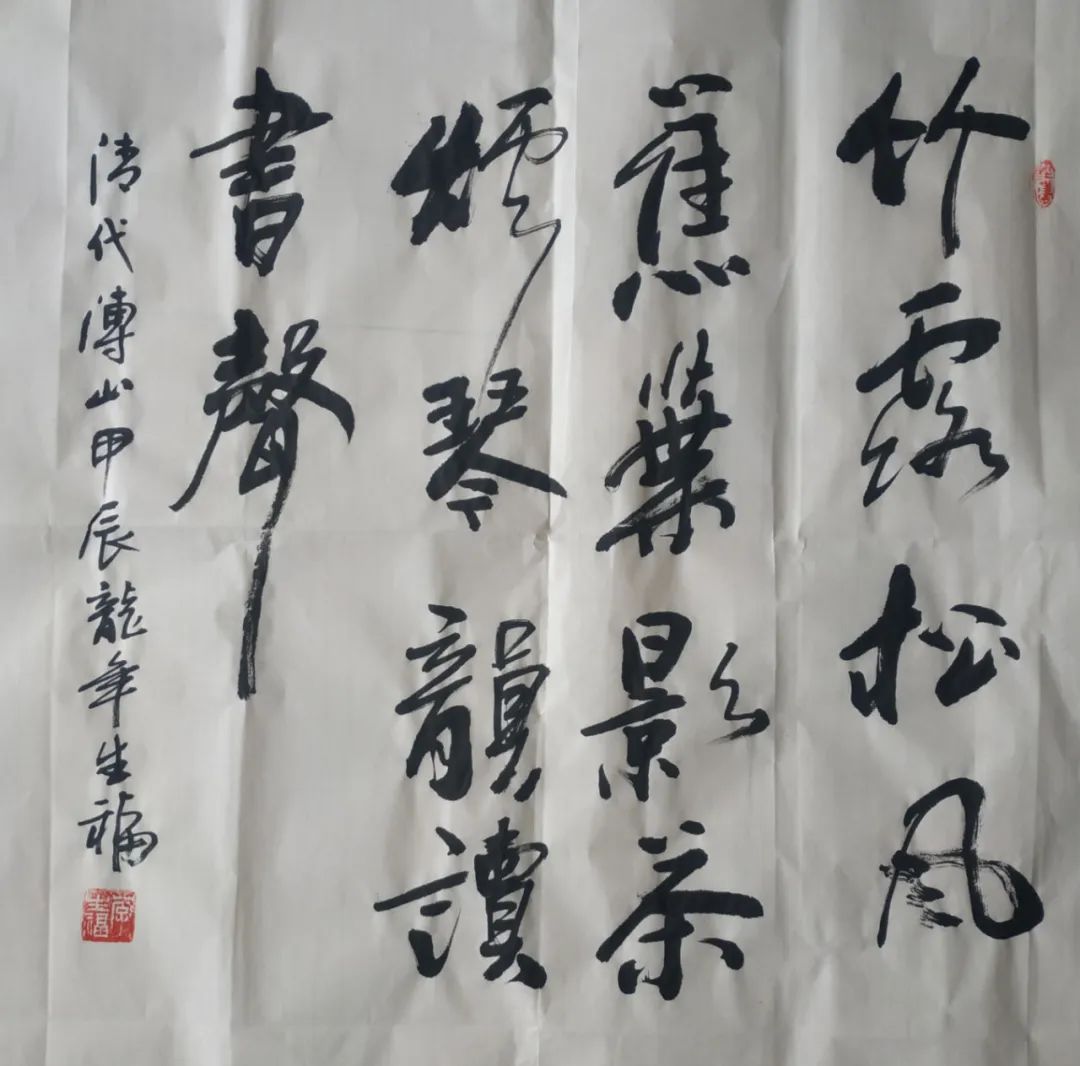 竹露松风
蕉葉影茶
煙琴韻讀
書聲
清代傅山甲辰龍年生福